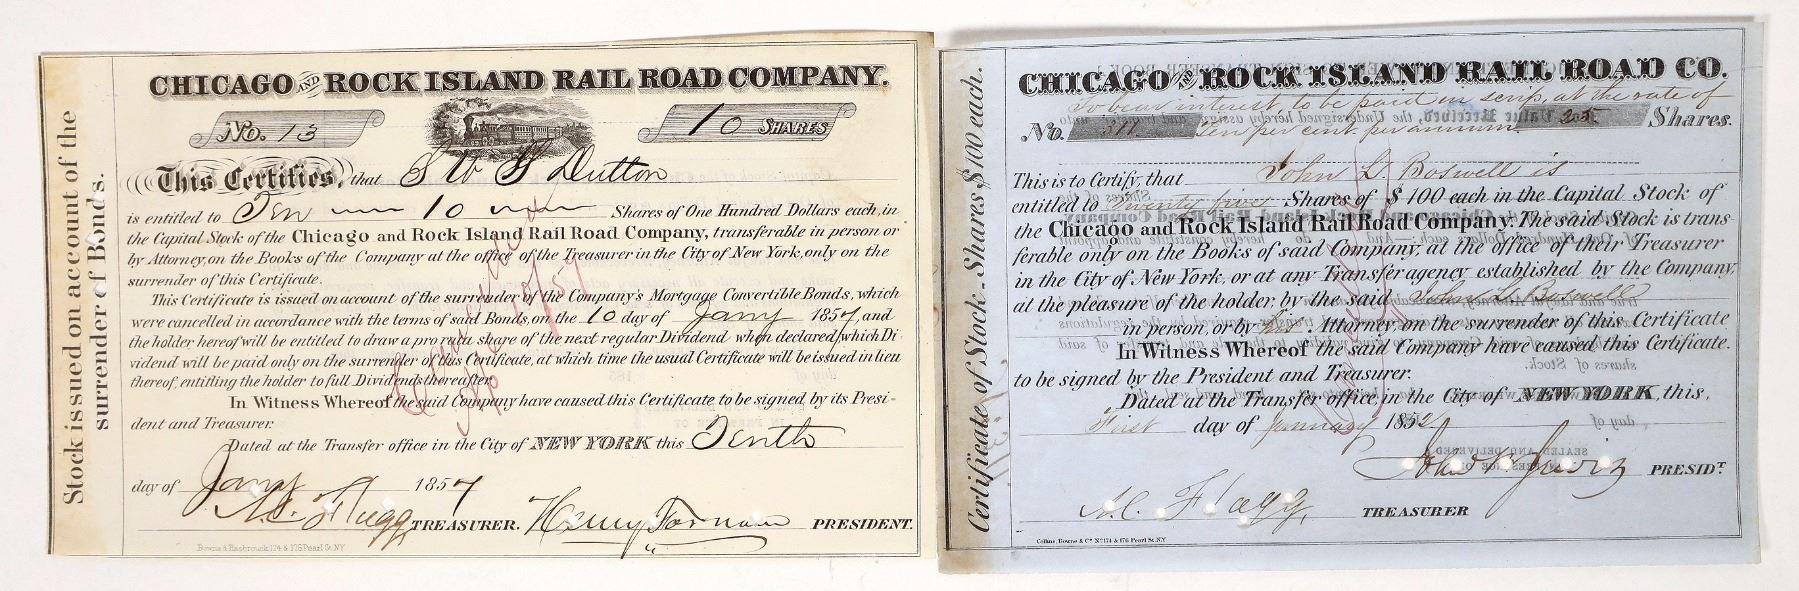 Stock issued on account of the
surrender of Bonds.
CHICAGO AND ROCK ISLAND RAIL ROAD COMPANY.
No. 13
10 SHARES
This Certifies, that S W S Dutton
is entitled to Ten 10 Shares of One Hundred Dollars each, in
the Capital Stock of the Chicago and Rock Island Rail Road Company, transferable in person or
by Attorney, on the Books of the Company at the office of the Treasurer in the City of New York, only on the
surrender of this Certificate.
This Certificate is issued on account of the surrender of the Company's Mortgage Convertible Bonds, which
were cancelled in accordance with the terms of said Bonds, on the 10 day of Jany 1857, and
the holder hereof will be entitled to draw a pro rata share of the next regular Dividend when declared, which Di-
vidend will be paid only on the surrender of this Certificate, at which time the usual Certificate will be issued in lieu
thereof, entitling the holder to full Dividends thereafter.
In Witness Whereof the said Company have caused this Certificate to be signed by its Presi-
dent and Treasurer.
Dated at the Transfer office in the City of NEW YORK this Tenth
day of Jany 1857
A.C. Flagg TREASURER. Henry Farnam PRESIDENT.
Bowne & Hasbrouck 174 & 176 Pearl St. NY
Cancelled
Certificate of Stock. Shares $100 each.
CHICAGO AND ROCK ISLAND RAIL ROAD CO.
To bear interest, to be paid in scrip, at the rate of
No. 311 ten per cent. per annum. 25 Shares.
This is to Certify, that John L. Boswell is
entitled to Twenty five Shares of $100 each in the Capital Stock of
the Chicago and Rock Island Rail Road Company. The said Stock is trans-
ferable only on the Books of said Company, at the office of their Treasurer
in the City of New York, or at any Transfer agency established by the Company,
at the pleasure of the holder, by the said John L. Boswell
in person, or by his Attorney, on the surrender of this Certificate
In Witness Whereof the said Company have caused this Certificate.
to be signed by the President and Treasurer.
Dated at the Transfer office, in the City of NEW YORK, this,
First day of January 1852
John B Jervis PRESIDT.
A.C. Flagg, TREASURER
Collins, Bowne & Co. No. 174 & 176 Pearl St. NY